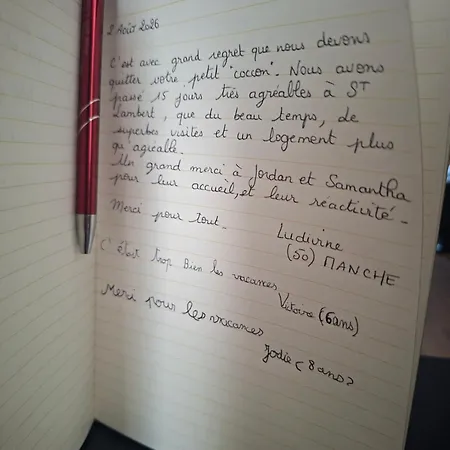 2 Août 2026
C'est avec grand regret que nous devons
quitter votre petit "coccon". Nous avons
passé 15 jours très agréables à ST
Lambert, que du beau temps, de
superbes visites et un logement plus
qu'agréable.
Un grand merci à Jordan et Samantha
pour leur accueil, et leur réactivité.
Merci pour tout.
Ludivine
(50) MANCHE
C'était trop Bien les vacances
Victoire (6ans)
Merci pour les vacances
Jodie (8 ans)